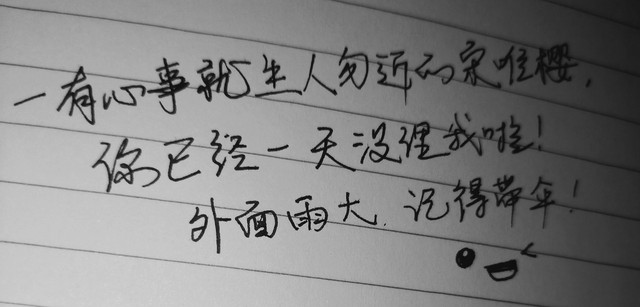 一有心事就生人勿近的宋唯樱,
你已经一天没理我啦!
外面雨大.记得带伞!